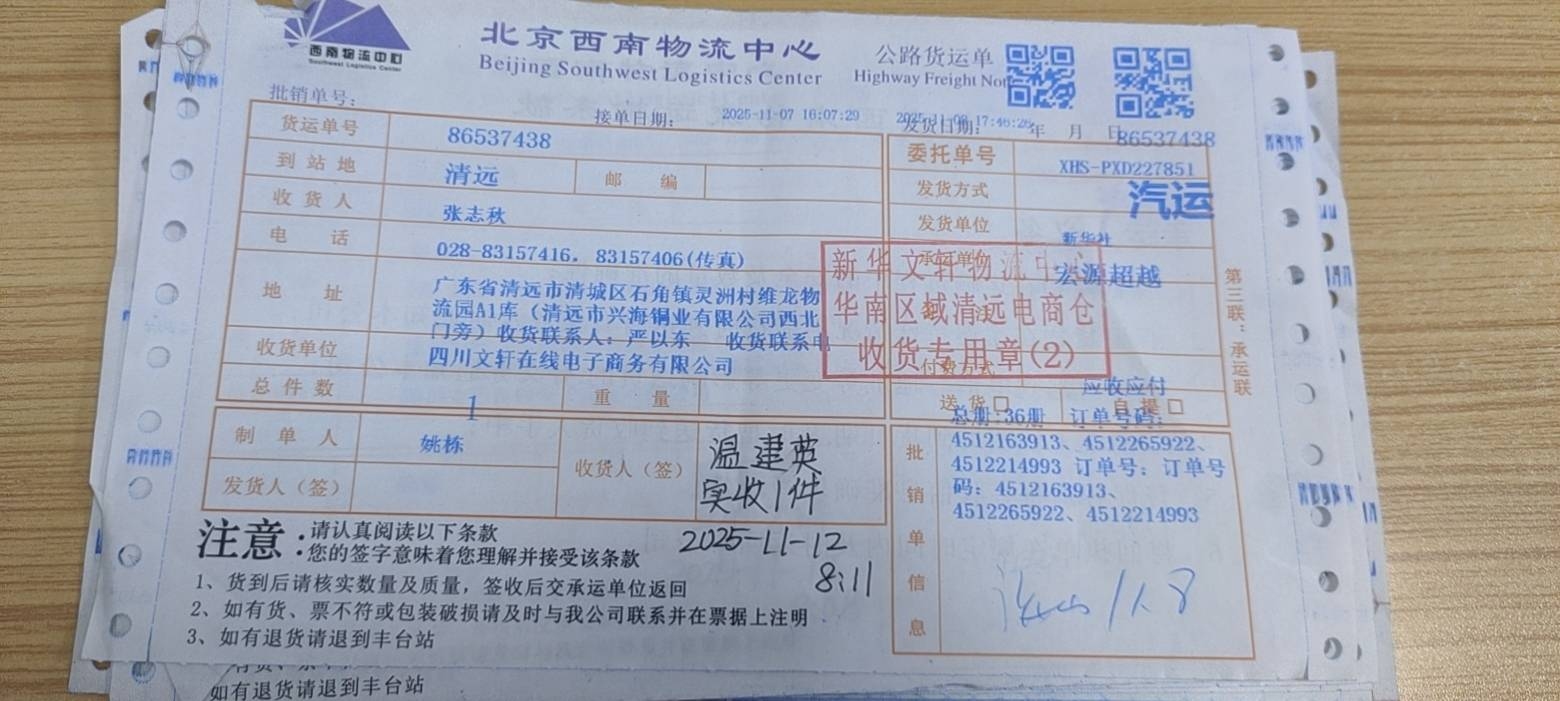 西南物流中心
Southwest Logistics Center
北京西南物流中心
Beijing Southwest Logistics Center
公路货运单
Highway Freight Not
批销单号：
接单日期： 2025-11-07 16:07:29
发货日期： 17:46:26 年 月 日
86537438
货运单号 86537438
委托单号 XHS-PXD227851
到站地 清远 邮编
发货方式 汽运
收货人 张志秋
发货单位 新华社
电话 028-83157416，83157406(传真)
承运单位 宏源超越
地址 广东省清远市清城区石角镇灵洲村维龙物
流园A1库（清远市兴海铜业有限公司西北
门旁）收货联系人：严以东 收货联系电
新华文轩物流中心
华南区域清远电商仓
收货专用章(2)
收货单位 四川文轩在线电子商务有限公司
付费方式 应收应付
总件数 1 重量
送货□ 自提□
第三联：承运联
制单人 姚栋
收货人（签） 温建英
实收1件
发货人（签）
2025-11-12
8:11
批销单信息
总册:36册 订单号码：
4512163913、4512265922、
4512214993 订单号：订单号
码：4512163913、
4512265922、4512214993
注意：请认真阅读以下条款
您的签字意味着您理解并接受该条款
1、货到后请核实数量及质量，签收后交承运单位返回
2、如有货、票不符或包装破损请及时与我公司联系并在票据上注明
3、如有退货请退到丰台站
如有退货请退到丰台站